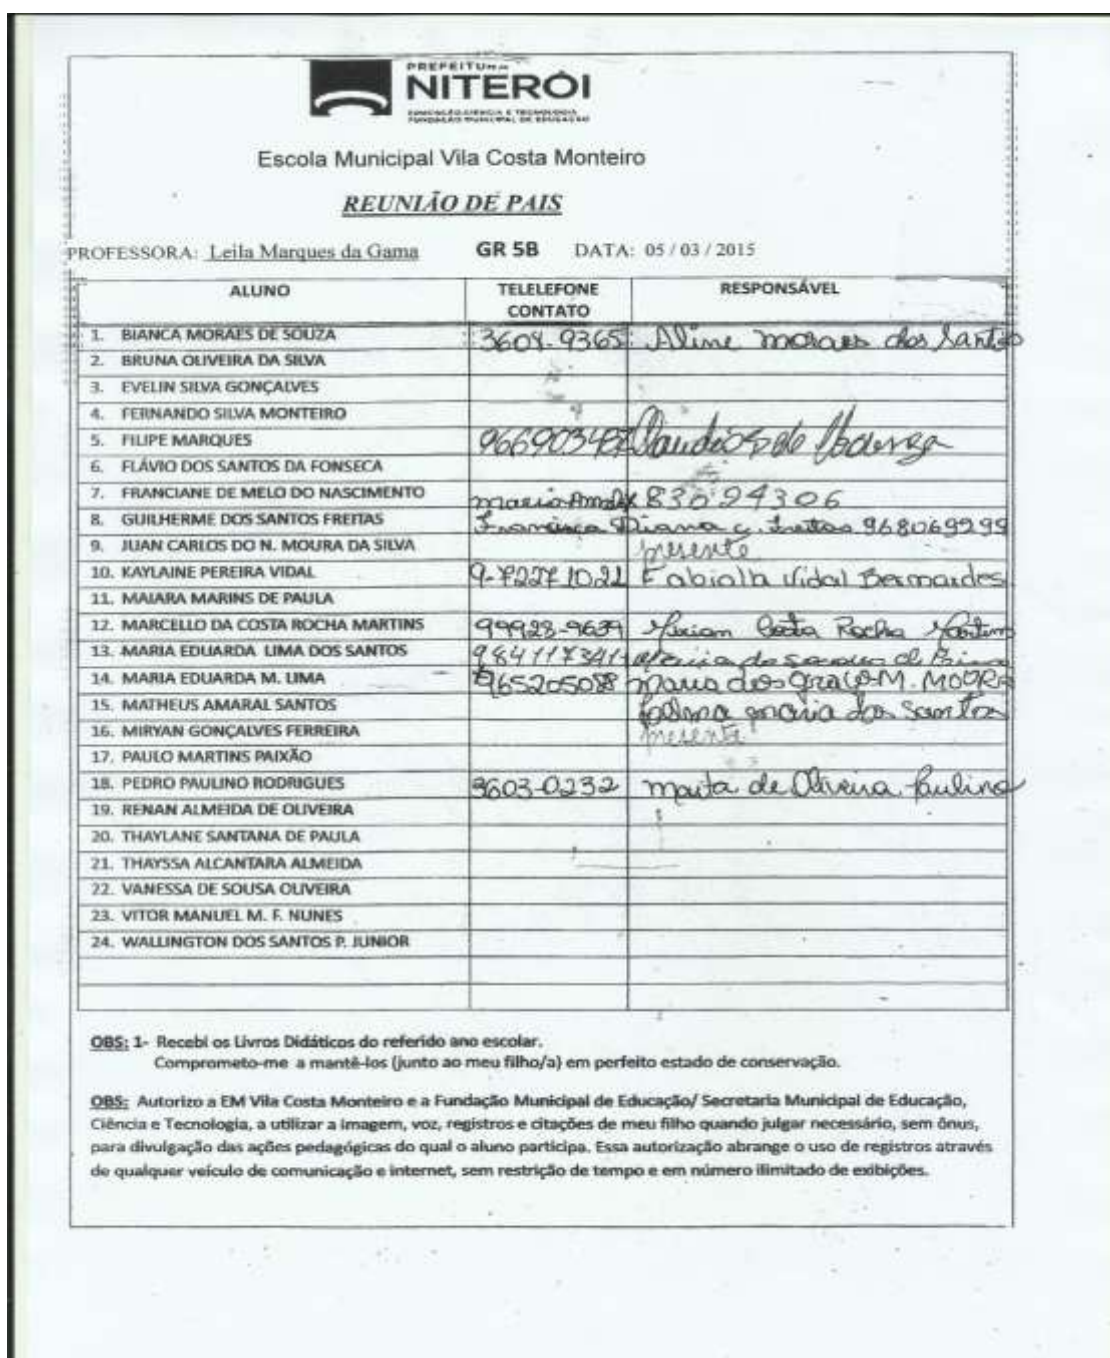 PREFEITURA
NITERÓI
EDUCAÇÃO, CIÊNCIA E TECNOLOGIA
FUNDAÇÃO MUNICIPAL DE EDUCAÇÃO
Escola Municipal Vila Costa Monteiro
REUNIÃO DE PAIS
PROFESSORA: Leila Marques da Gama GR 5B DATA: 05 / 03 / 2015
ALUNO TELELEFONE CONTATO RESPONSÁVEL
1. BIANCA MORAES DE SOUZA 3604-9365 Aline moraes dos Santos
2. BRUNA OLIVEIRA DA SILVA
3. EVELIN SILVA GONÇALVES
4. FERNANDO SILVA MONTEIRO
5. FILIPE MARQUES
6. FLÁVIO DOS SANTOS DA FONSECA
7. FRANCIANE DE MELO DO NASCIMENTO 83094306
8. GUILHERME DOS SANTOS FREITAS Francisca Diana c. Freitas 968069299
9. JUAN CARLOS DO N. MOURA DA SILVA presente
10. KAYLAINE PEREIRA VIDAL 9-7227 1021 Fabiolla Vidal Bernardes
11. MAIARA MARINS DE PAULA
12. MARCELLO DA COSTA ROCHA MARTINS 99928-9639 Mirian Costa Rocha Martins
13. MARIA EDUARDA LIMA DOS SANTOS 984117341
14. MARIA EDUARDA M. LIMA 965205088 maria dos graças M. MOURA
15. MATHEUS AMARAL SANTOS maria dos Santos
16. MIRYAN GONÇALVES FERREIRA presente
17. PAULO MARTINS PAIXÃO
18. PEDRO PAULINO RODRIGUES 3603-0232 marta de Oliveira Paulino
19. RENAN ALMEIDA DE OLIVEIRA
20. THAYLANE SANTANA DE PAULA
21. THAYSSA ALCANTARA ALMEIDA
22. VANESSA DE SOUSA OLIVEIRA
23. VITOR MANUEL M. F. NUNES
24. WALLINGTON DOS SANTOS P. JUNIOR
OBS: 1- Recebi os Livros Didáticos do referido ano escolar.
Comprometo-me a mantê-los (junto ao meu filho/a) em perfeito estado de conservação.
OBS: Autorizo a EM Vila Costa Monteiro e a Fundação Municipal de Educação/ Secretaria Municipal de Educação,
Ciência e Tecnologia, a utilizar a imagem, voz, registros e citações de meu filho quando julgar necessário, sem ônus,
para divulgação das ações pedagógicas do qual o aluno participa. Essa autorização abrange o uso de registros através
de qualquer veículo de comunicação e internet, sem restrição de tempo e em número ilimitado de exibições.